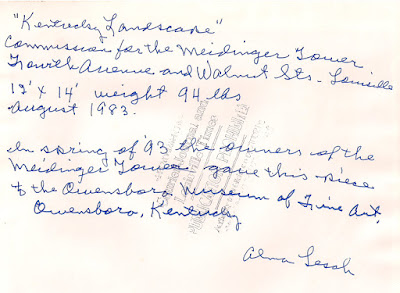 "Kentucky Landscape"
Commission for the Meidinger Tower
Fourth Avenue and Walnut Sts - Louisville
13' x 14' weight 94 lbs
August 1983.
In spring of '93 the owners of the
Meidinger Tower gave this piece
to the Owensboro Museum of Fine Art,
Owensboro, Kentucky
Alma Lesch